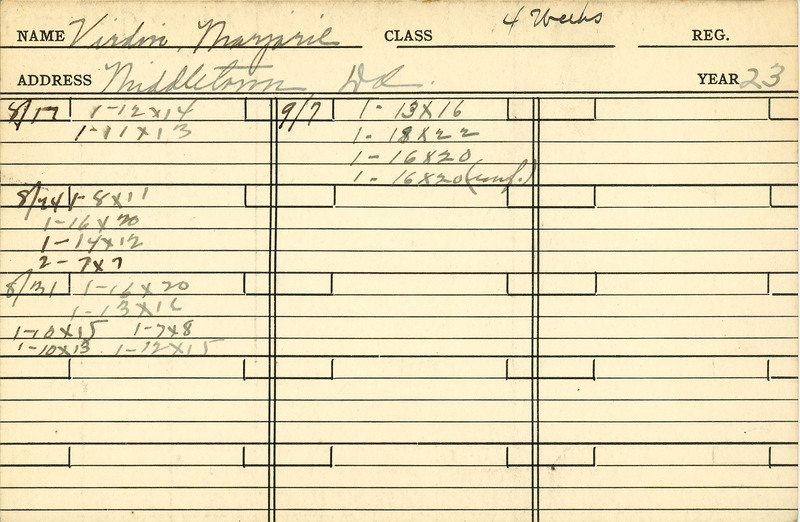 NAME Virdin, Marjorie CLASS 4 Weeks REG.
ADDRESS Middletown Del. YEAR 23
8/17 1-12x14
1-11x13
8/24 1-8x11
1-16x20
1-14x12
2-7x7
8/31 1-16x20
1-13x16
1-10x15 1-7x8
1-10x13 1-12x15
9/7 1-13x16
1-18x22
1-16x20
1-16x20 (unf.)